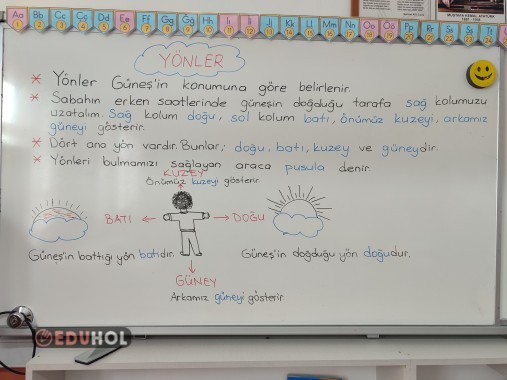 Aa Bb Cc Çç Dd Ee Ff Gg Ğğ Hh Iı İi Jj Kk Ll Mm Nn Oo Öö Pp Rr Ss Şş Tt
YÖNLER
* Yönler Güneş'in konumuna göre belirlenir.
* Sabahın erken saatlerinde güneşin doğduğu tarafa sağ kolumuzu
uzatalım. Sağ kolum doğu, sol kolum batı, önümüz kuzeyi, arkamız
güneyi gösterir.
* Dört ana yön vardır. Bunlar; doğu, batı, kuzey ve güneydir.
* Yönleri bulmamızı sağlayan araca pusula denir.
KUZEY
Önümüz kuzeyi gösterir.
BATI
DOĞU
Güneş'in battığı yön batıdır.
Güneş'in doğduğu yön doğudur.
GÜNEY
Arkamız güneyi gösterir
EDUHOL